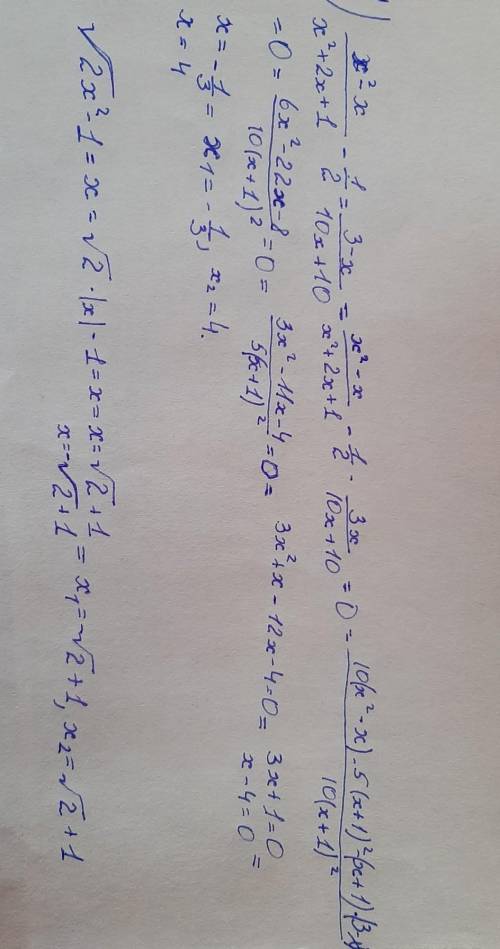 )
(x² - x)/(x² + 2x + 1) - 1/2 = (3 - x)/(10x + 10) = (x² - x)/(x² + 2x + 1) - 1/2 - (3x)/(10x + 10) = 0 = (10(x² - x) - 5(x + 1)² - (x + 1)·(3 -)/(10(x + 1)²)
= 0 = (6x² - 22x - 8)/(10(x + 1)²) = 0 = (3x² - 11x - 4)/(5(x + 1)²) = 0 = 3x² + x - 12x - 4 = 0 = 3x + 1 = 0
x - 4 = 0 =
x = -1/3 = x₁ = -1/3, x₂ = 4.
x = 4
√2x² - 1 = x = √2 · |x| - 1 = x = x = √2 + 1
x = -√2 + 1 = x₁ = -√2 + 1, x₂ = √2 + 1